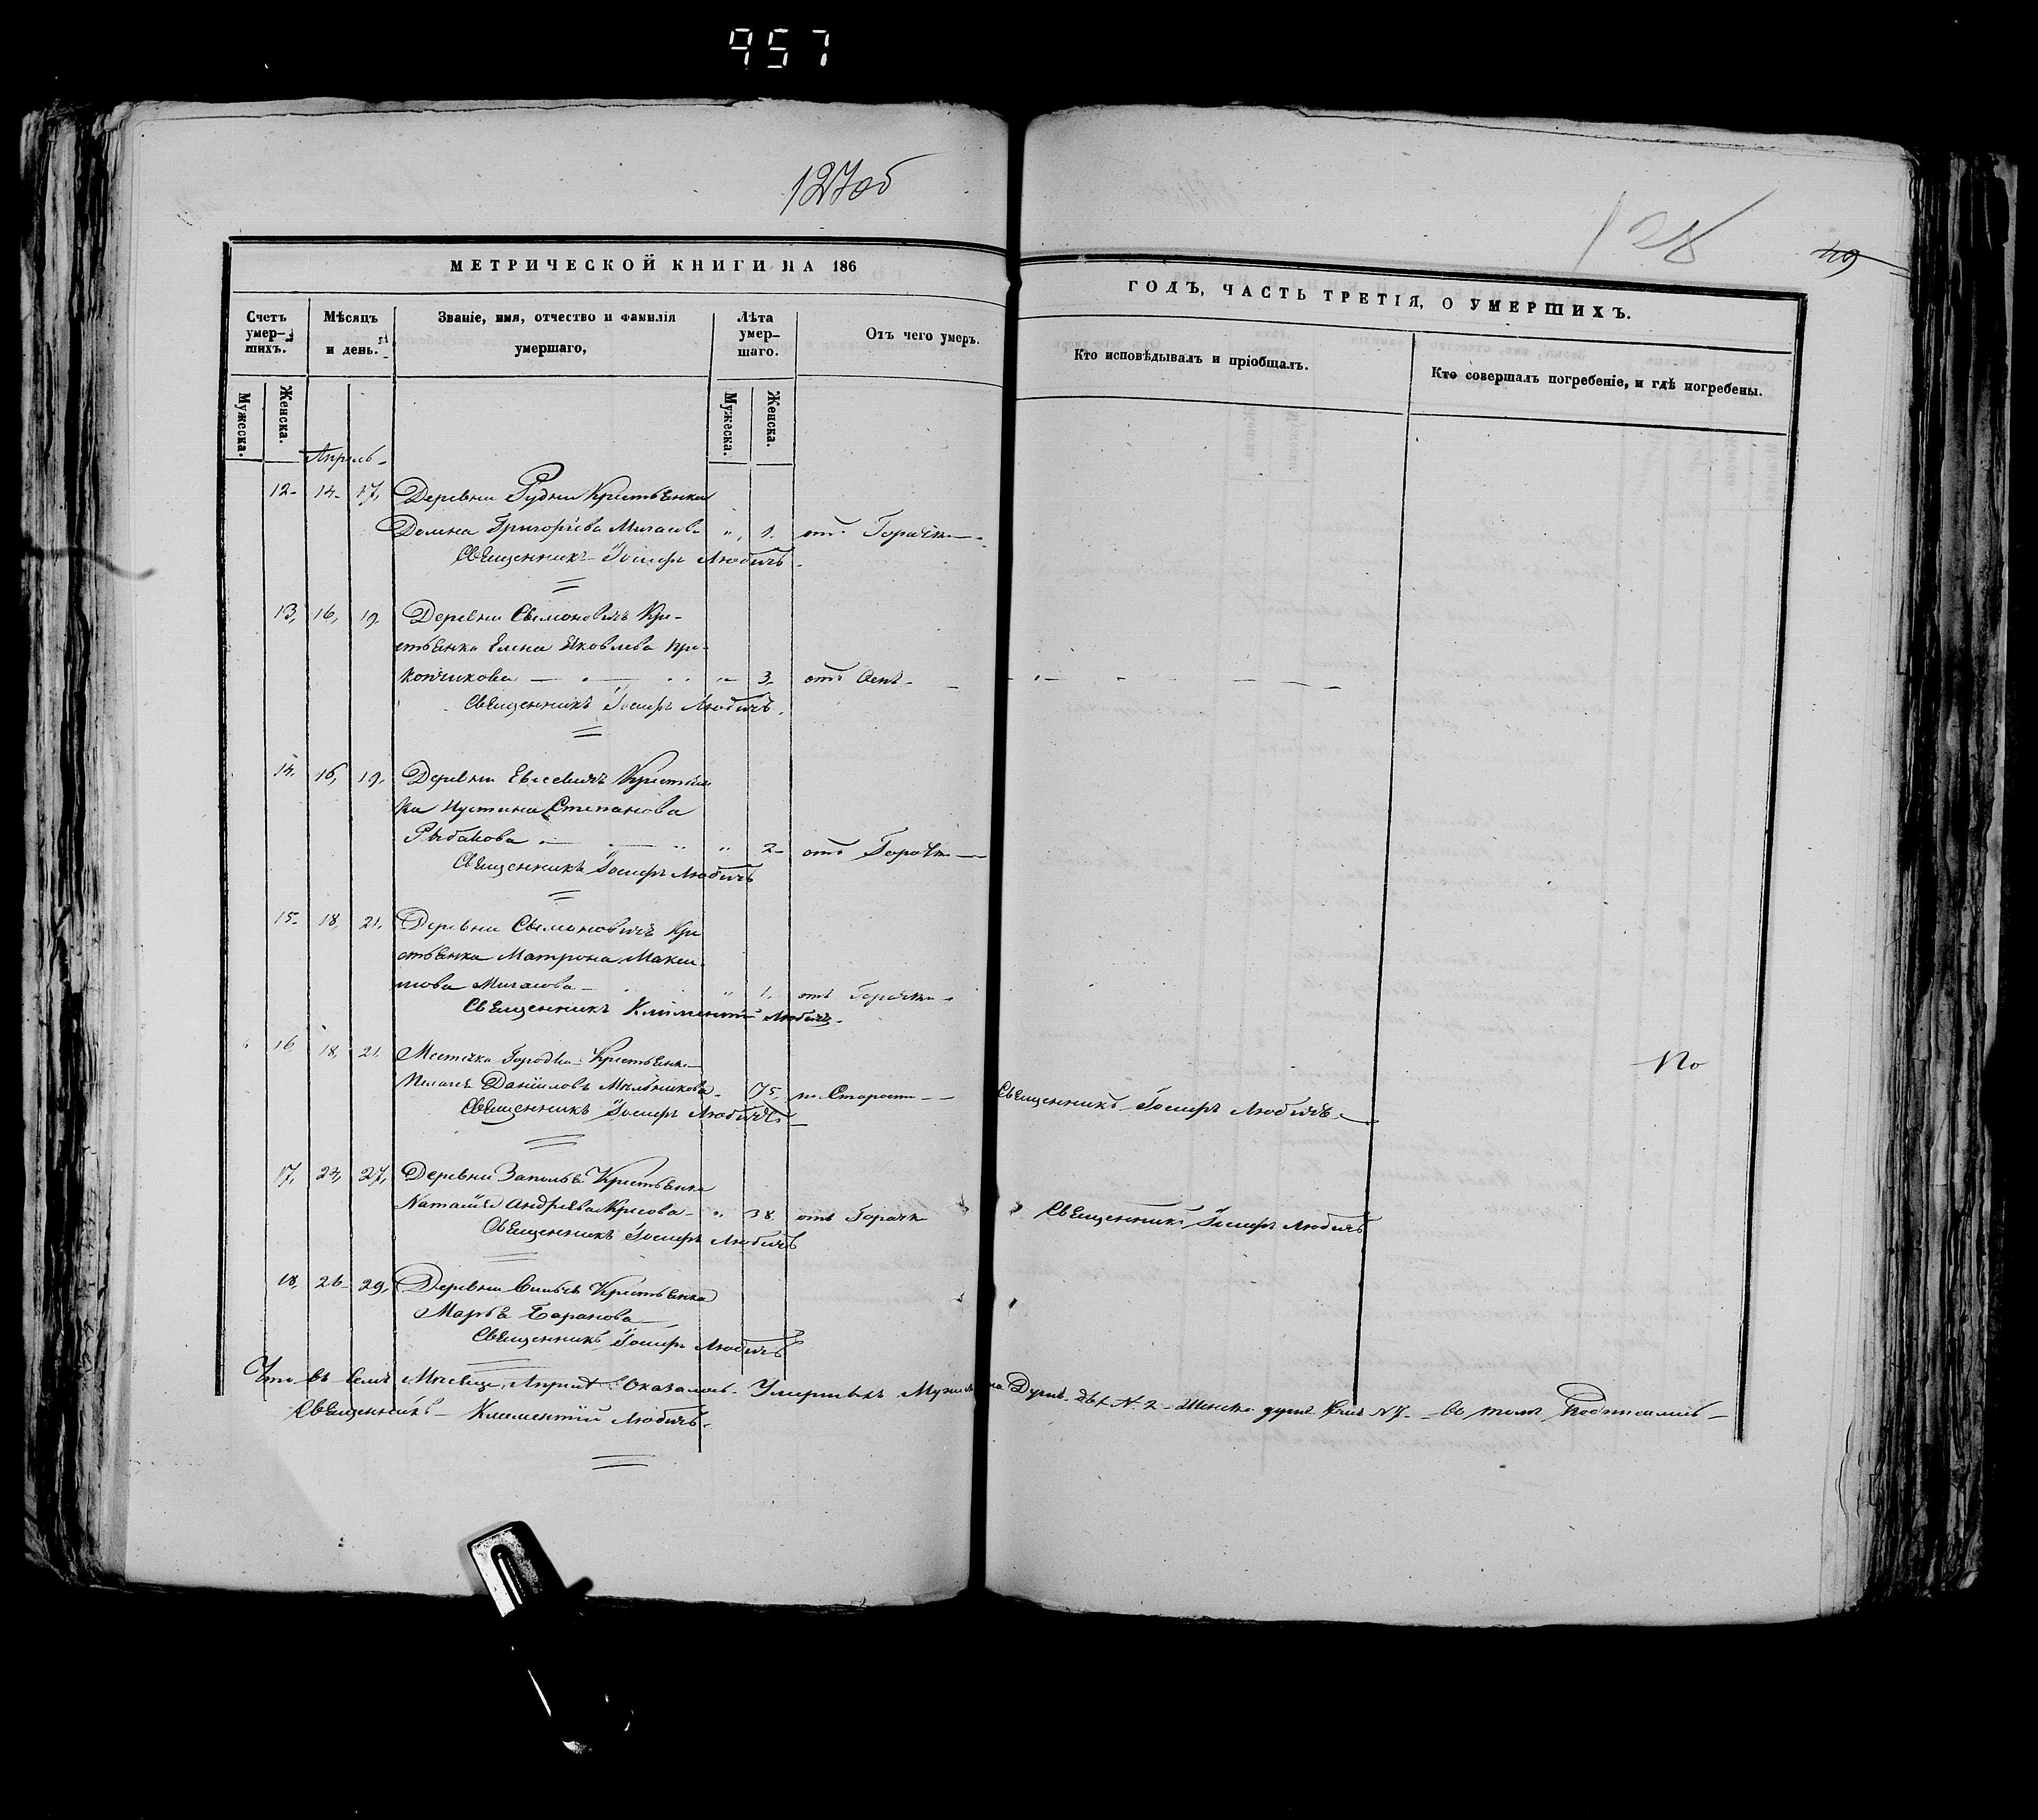 957
127об
128
49
МЕТРИЧЕСКОЙ КНИГИ НА 186
ГОДЪ, ЧАСТЬ ТРЕТІЯ, О УМЕРШИХЪ.
Счетъ умер-шихъ.
Мѣсяцъ и день.
Званіе, имя, отчество и фамилія умершаго,
Лѣта умер-шаго.
Отъ чего умеръ.
Кто исповѣдывалъ и пріобщалъ.
Кто совершалъ погребеніе, и гдѣ погребены.
Мужеска.
Женска.
Мужеска.
Женска.
Апрель
12 14 17 Деревни Рудни Крестьянка
Домна Григорьева 1. отъ Горячки
Священникъ Іосифъ Любичъ
13, 16, 19 Деревни Симоновичъ Кре-
стьянка Елена Яковлева Про-
копчикова 3 отъ Оспы
Священникъ Іосифъ Любичъ
14. 16, 19, Деревни Евсевичъ Крестьян
ка Иустина Степанова
Рыбакова 2 отъ Горячки
Священникъ Іосифъ Любичъ
15 18, 21, Деревни Симоновичъ Кре
стьянка Матрона Макси
мова 1. отъ Горячки
Священникъ Климентій Любичъ
16 18, 21 Местечка Городка Крестьянка
Данилова Мыльникова 75, по Старости Священникъ Іосифъ Любичъ
Священникъ Іосифъ Любичъ
17, 24, 27, Деревни Заполья Крестьянка
Наталія Андреева 38 отъ Горячки Священникъ Іосифъ Любичъ
Священникъ Іосифъ Любичъ
18, 26 29, Деревни Крестьянка
Марья Баранова
Священникъ Іосифъ Любичъ
Что въ семъ Месяце Апреле Оказалось Умершихъ Мужеска Душъ двѣ N. 2 Женска душъ семь N 7 въ томъ Подписались
Священникъ Климентій Любичъ